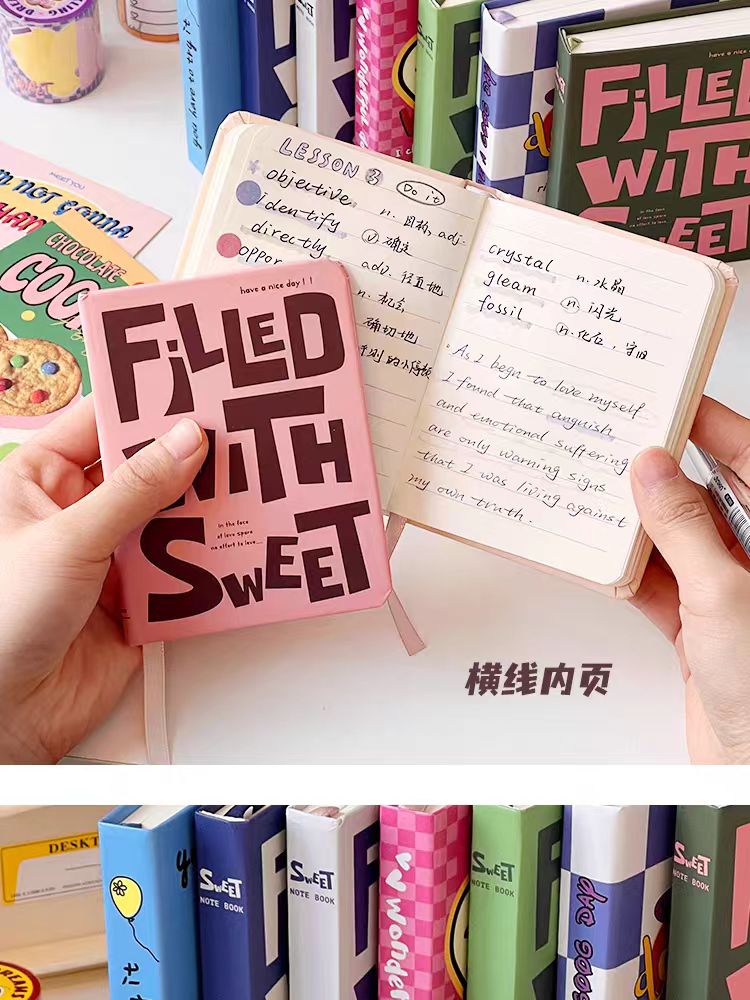 you have to try it
have a nice day ! !
FiLLED
WiTH
SWEET
In the face
MEET YOU
I'M NOT GONNA
CHOCOLATE
LESSON 3
Do it
objective n. 目标, adj.
identify v 确定
directly adv. 径直地
oppor
n. 机会
确切地
crystal n. 水晶
gleam n. 闪光
fossil n. 化石,守旧
As I begn to love myself
I found that anguish
and emotional suffering
are only warning signs
that I was living against
my own truth.
have a nice day ! !
FiLLED
WiTH
SWEET
In the face
of love spare
no effort to love
横线内页
DESKT
it
SWEET
NOTE BOOK
SWEET
NOTE BOOK
Wonder
SWEET
NOTE BOOK
GOOG DAY
SWEET
NOTE BOOK